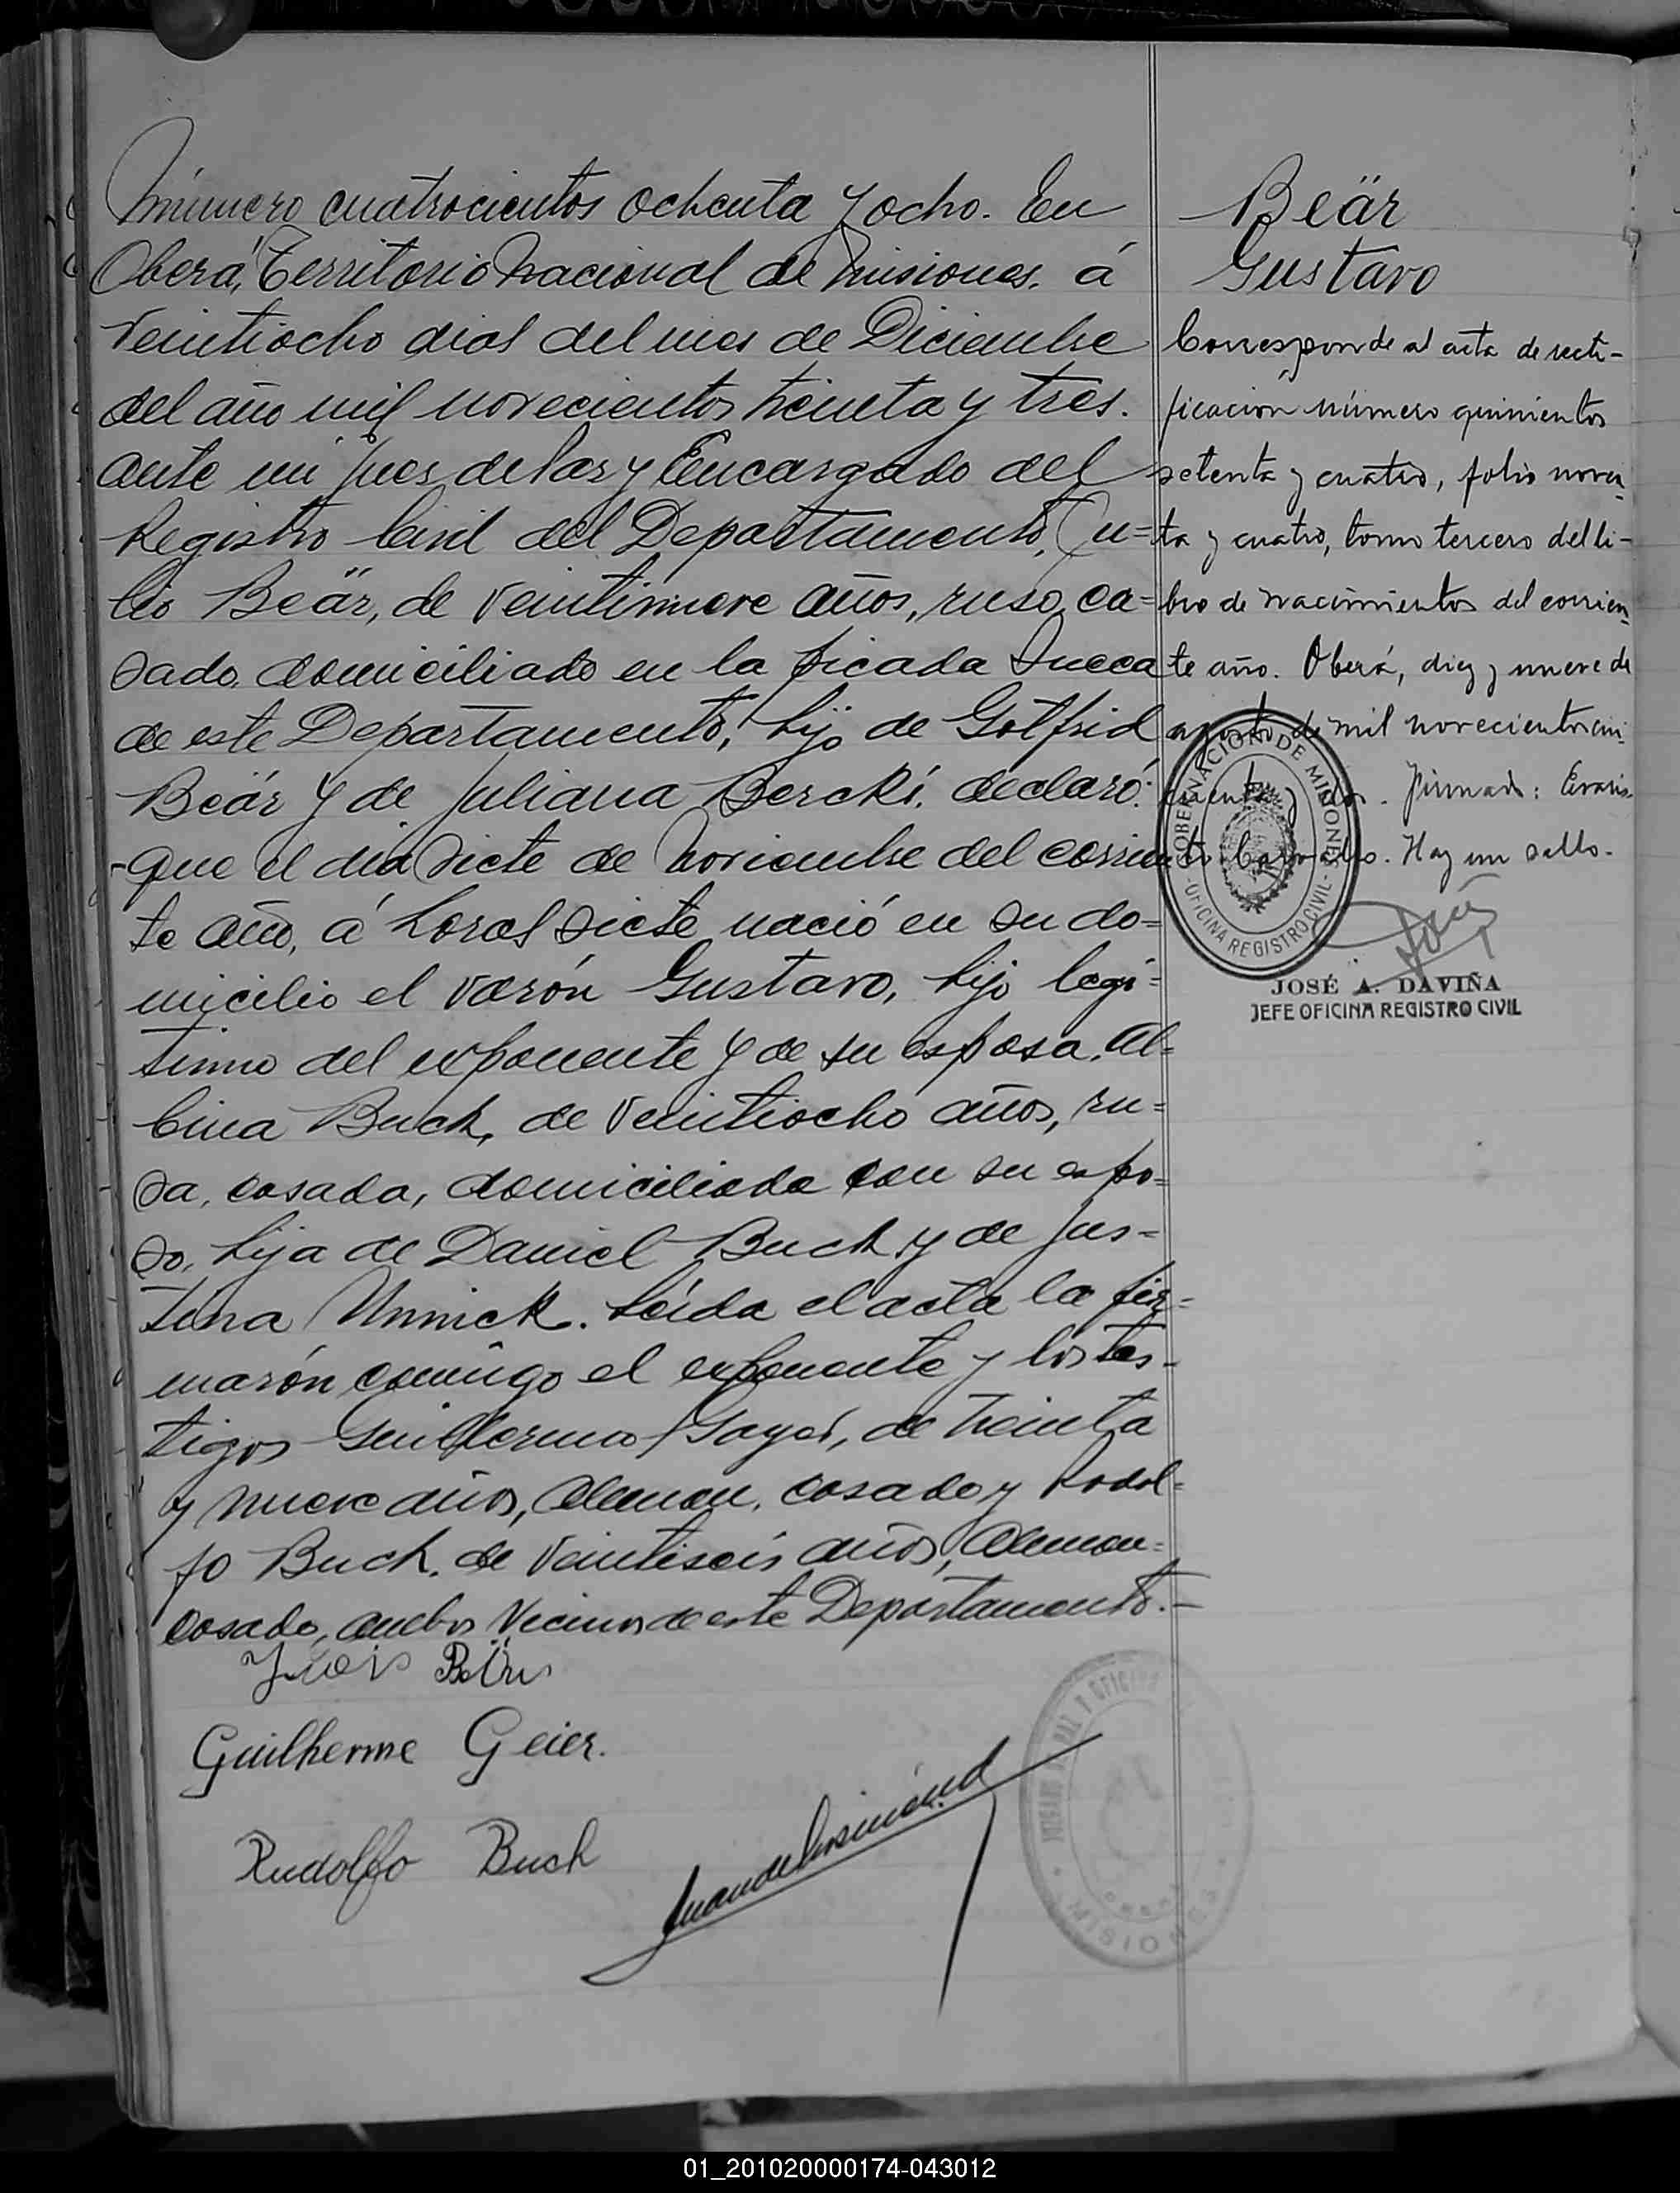 Número cuatrocientos ochenta y ocho. En
Oberá, Territorio Nacional de Misiones, á
veintiocho dias del mes de Diciembre
del año mil novecientos treinta y tres.
ante mi Juez de Paz y Encargado del
Registro Civil del Departamento,
Beär, de veintinueve años, ruso, ca=
sado, domiciliado en la picada Sueca
de este Departamento, hijo de Gotfrid
Beär y de Juliana Bercki, declaró:
-que el dia siete de Noviembre del corrien
te año, á horas siete nació en su do=
micilio el varón Gustavo, hijo legi=
timo del exponente y de su esposa, Al=
bina Buch, de veintiocho años, ru=
sa, casada, domiciliada con su espo=
so, hija de Daniel Buch y de Jus=
tina Unnick. Leida el acta la fir=
marón conmigo el exponente y los tes=
tigos Guillermo Gayer, de treinta
y nueve años, Aleman, casado y Rodol=
fo Buch, de veintiseis años, Aleman=
casado, ambos vecinos de este Departamento.-
Guilherme Geier.
Rudolfo Buch
Beär
Gustavo
Corresponde al acta de recti-
ficación número quinientos
setenta y cuatro, folio noven
ta y cuatro, tomo tercero del li-
bro de nacimientos del corrien
te año. Oberá, diez y nueve de
agosto de mil novecientos cin
cuenta y dos. Firmado: Evaris
to. Hay un sello.
GOBERNACION DE MISIONES
- OFICINA REGISTRO CIVIL -
JOSÉ A. DAVIÑA
JEFE OFICINA REGISTRO CIVIL
MISIONES
01_201020000174-043012